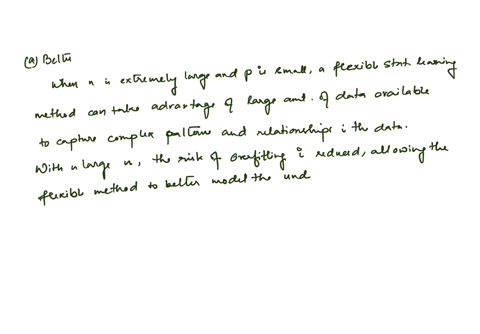 (a) Better
When n is extremely large and p is small, a flexible stat learning
method can take advantage of large amt. of data available
to capture complex patterns and relationships i the data.
With n large n, the risk of overfitting i reduced, allowing the
flexible method to better model the und